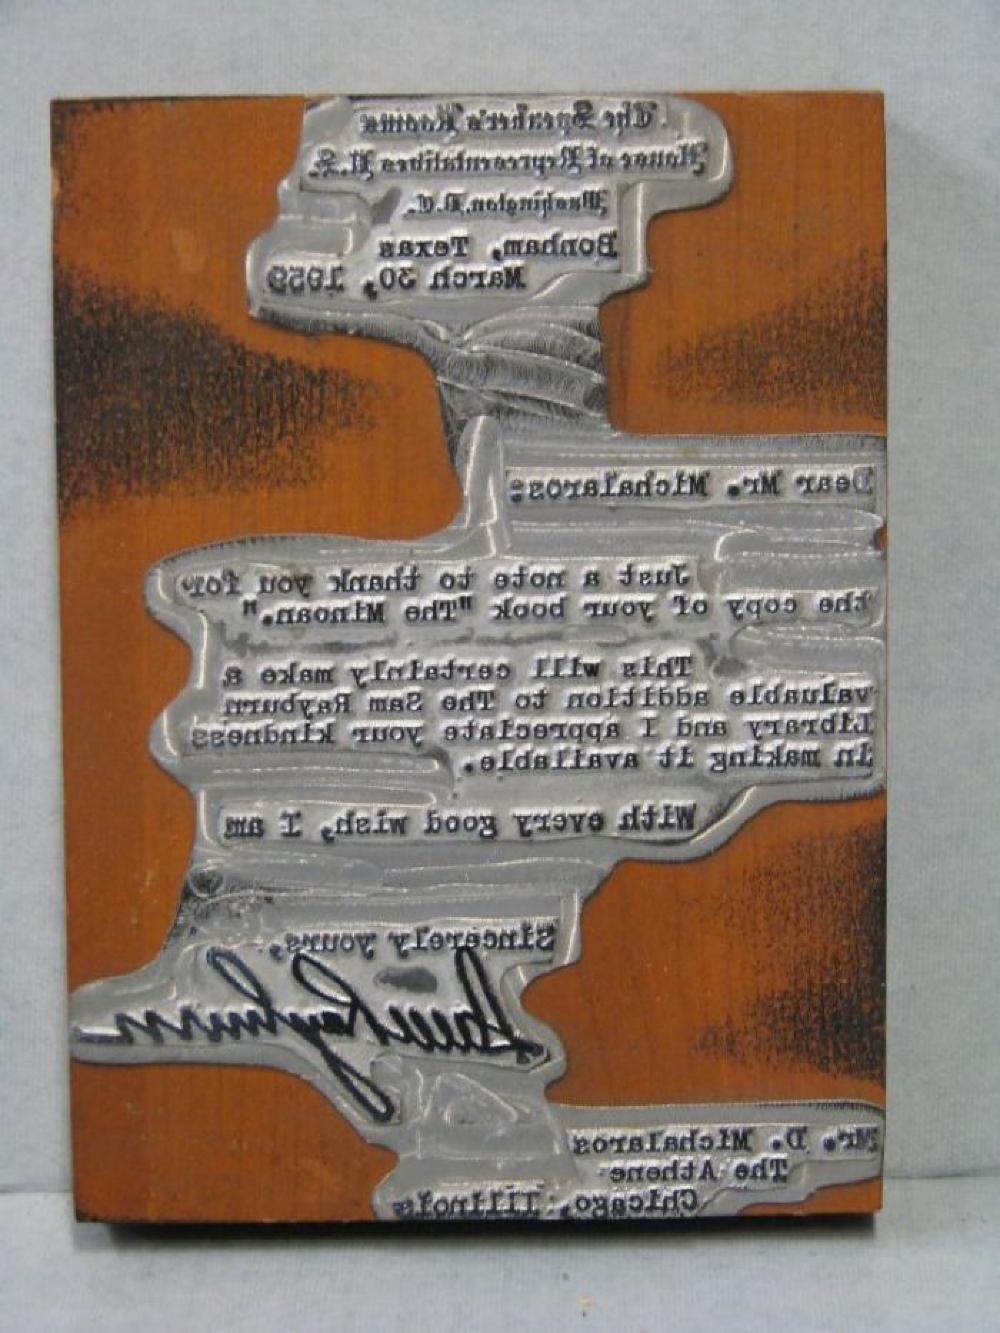 The Speaker's Rooms
House of Representatives U.S.
Washington, D.C.
Bonham, Texas
March 30, 1959
Dear Mr. Michalaros:
Just a note to thank you for
the copy of your book "The Minoan."
This will certainly make a
valuable addition to The Sam Rayburn
Library and I appreciate your kindness
in making it available.
With every good wish, I am
Sincerely yours,
Sam Rayburn
Mr. D. Michalaros
The Athene
Chicago, Illinois